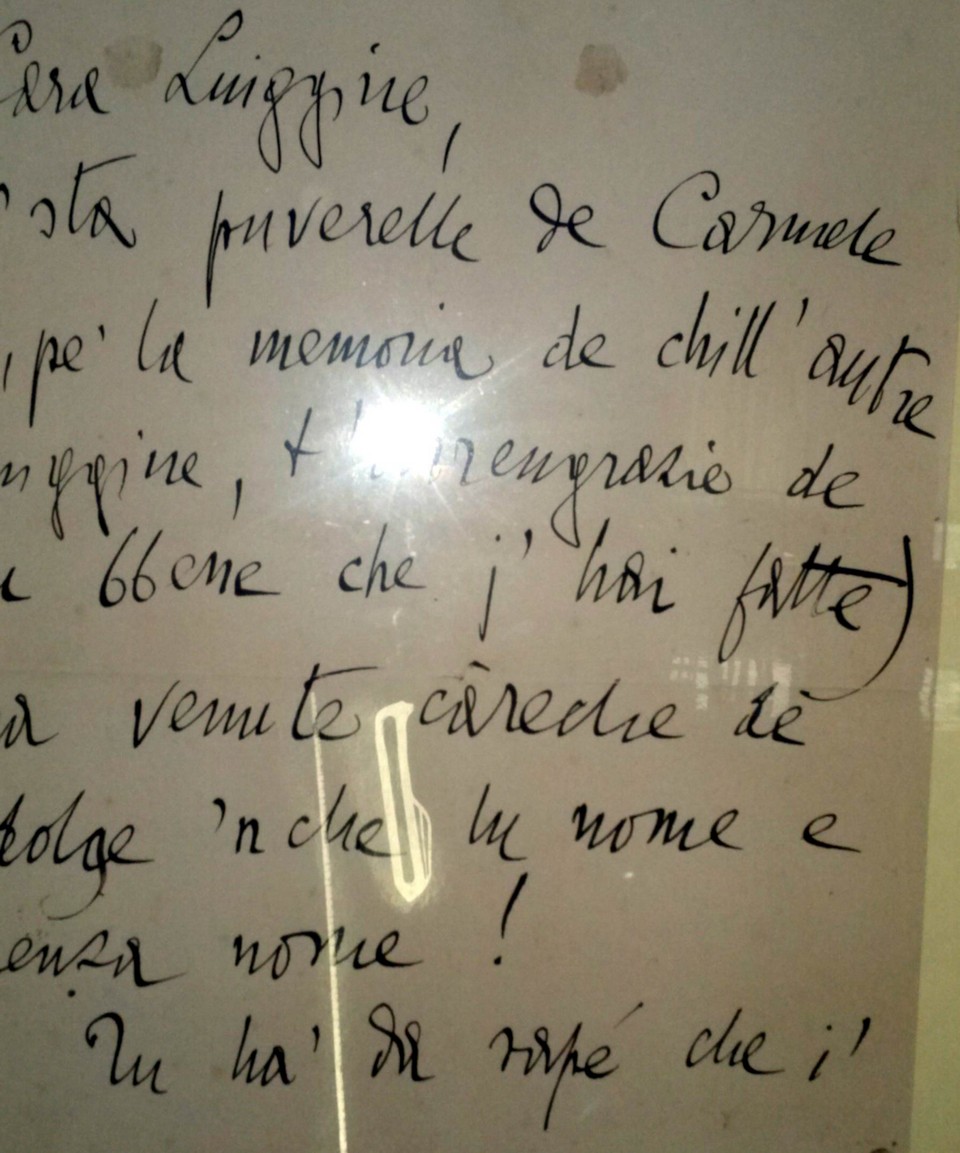 Cara Luiggine,
'sta puverelle de Carmele
, pe' la memoria de chill' autre
uggine, rengrazie de
bbene che j' hai fatte)
venute càreche dè
'nche lu nome e
enza nome!
Tu ha' da sapé che i'